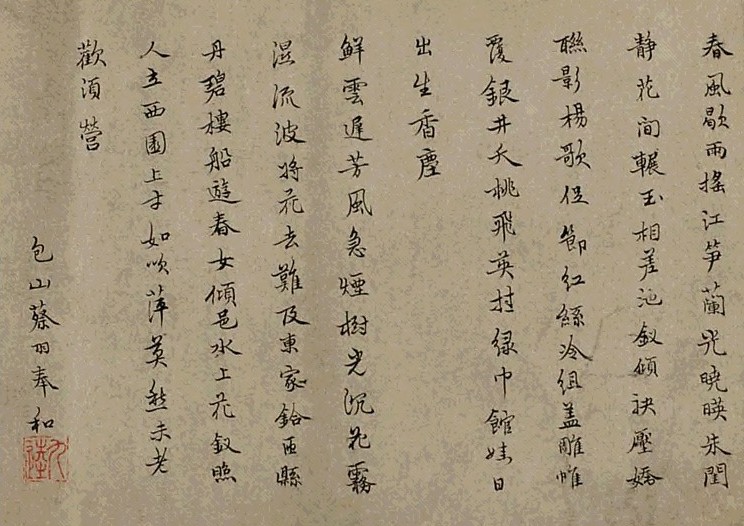 春風歇雨搖江笋蘭光曉暎朱閨
静花間輾玉相差池釵傾袂壓嬌
聯影楊歌促節紅絲冷組盖雕帷
覆銀井夭桃飛英拄緑巾館娃日
出生香塵
鮮雲遲芳風急煙樹光沉花霧
濕流波將花去難及東家鉿西縣
丹碧樓船遊春女傾邑水上花釵照
人立西園上才如吹萍莫愁未老
歡須營
包山蔡羽奉和